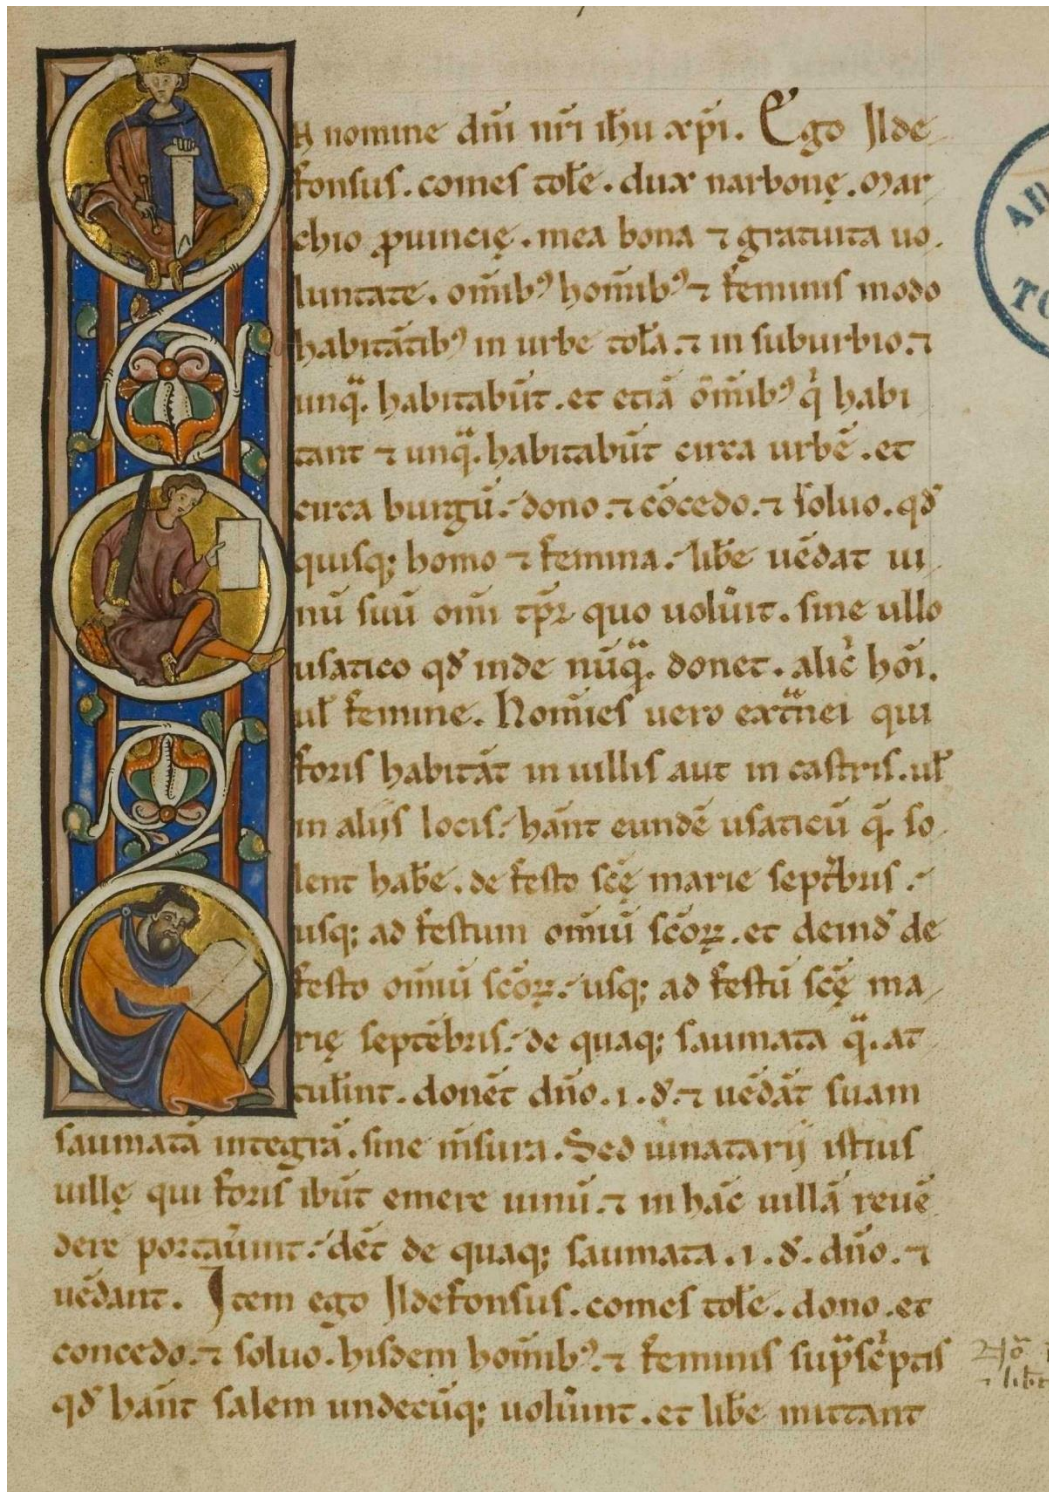 n nomine dn̄i nr̄i ih̄u xp̄i. Ego Ilde
fonsus. comes tol̄e. dux narbonę. Mar
chio ꝓuincię. mea bona ⁊ gratuita uo
luntate. om̄ibꝰ hom̄ibꝰ ⁊ feminis modo
habitātibꝰ in urbe tol̄a. ⁊ in suburbio. ⁊
unqᵃ. habitabūt. et etiā om̄ibꝰ qⁱ habi
tant ⁊ unqᵃ. habitabūt circa urbē. et
circa burgū. dono. ⁊ cōcedo. ⁊ soluo. qđ
quisq; homo ⁊ femina. lib̄e uēdat ui
nū suū om̄i tp̄r quo uolūit. sine ullo
usatico qđ inde nūqᵃ. donet. alic̄ hōi.
ul̄ femine. Homīes uero extᵃnei qui
foris habitāt in uillis aut in castris. ul̄
in aliis locis. hān̄t eundē usaticū q̄. so
lent hab̄e. de festo sc̄ę marie septēbris.
usq; ad festum om̄iū sc̄oꝝ. et deinđ de
festo om̄iū sc̄oꝝ. usq; ad festū sc̄ę ma
rię septēbris. de quaq; saumata qᵃ. at
tul̄int. donēt dn̄o. .i. đ. ⁊ uēdāt suam
saumatā integrā. sine m̄sura. Sed uinatarii istius
uillę qui foris ibūt emere uinū. ⁊ in hāc uillā reuē
dere portau̅unt. dēt de quaq; saumata. .i. đ. dn̄o. ⁊
uēdant. Item ego Ildefonsus. comes tol̄e. dono. et
concedo. ⁊ soluo. hisdem hom̄ibꝰ. ⁊ feminis supᵃscⁱptis
qđ hān̄t salem undecūq; uolu̅int. et lib̄e mittant